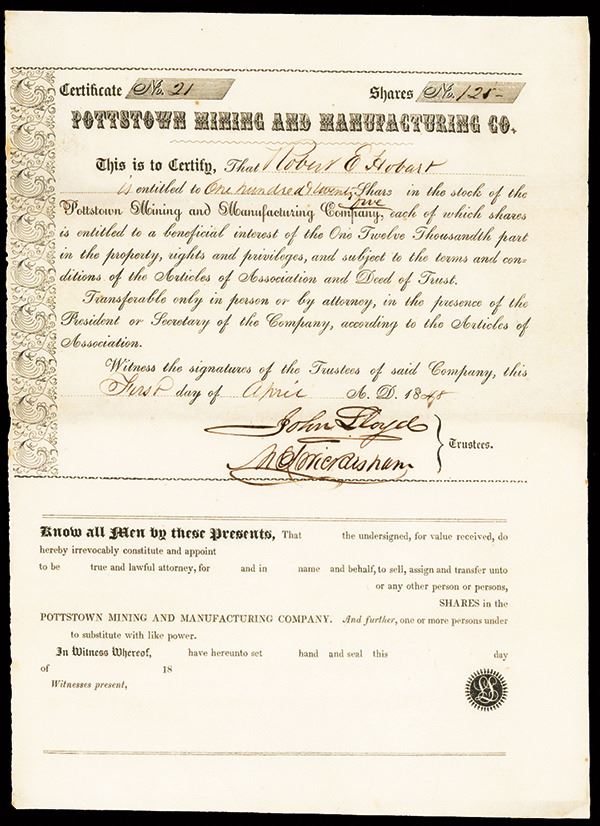 Certificate No. 21 Shares No. 125-
POTTSTOWN MINING AND MANUFACTURING CO.
This is to Certify, That Robert E Hobart
is entitled to One hundred & twenty Shars in the stock of the
five
Pottstown Mining and Manufacturing Company, each of which shares
is entitled to a beneficial interest of the One Twelve Thousandth part
in the property, rights and privileges, and subject to the terms and con-
ditions of the Articles of Association and Deed of Trust.
Transferable only in person or by attorney, in the presence of the
President or Secretary of the Company, according to the Articles of
Association.
Witness the signatures of the Trustees of said Company, this
First day of April A. D. 18
John Lloyd
Wickersham
Trustees.
Know all Men by these Presents, That the undersigned, for value received, do
hereby irrevocably constitute and appoint
to be true and lawful attorney, for and in name and behalf, to sell, assign and transfer unto
or any other person or persons,
SHARES in the
POTTSTOWN MINING AND MANUFACTURING COMPANY. And further, one or more persons under
to substitute with like power.
In Witness Whereof, have hereunto set hand and seal this day
of 18
Witnesses present,
LS